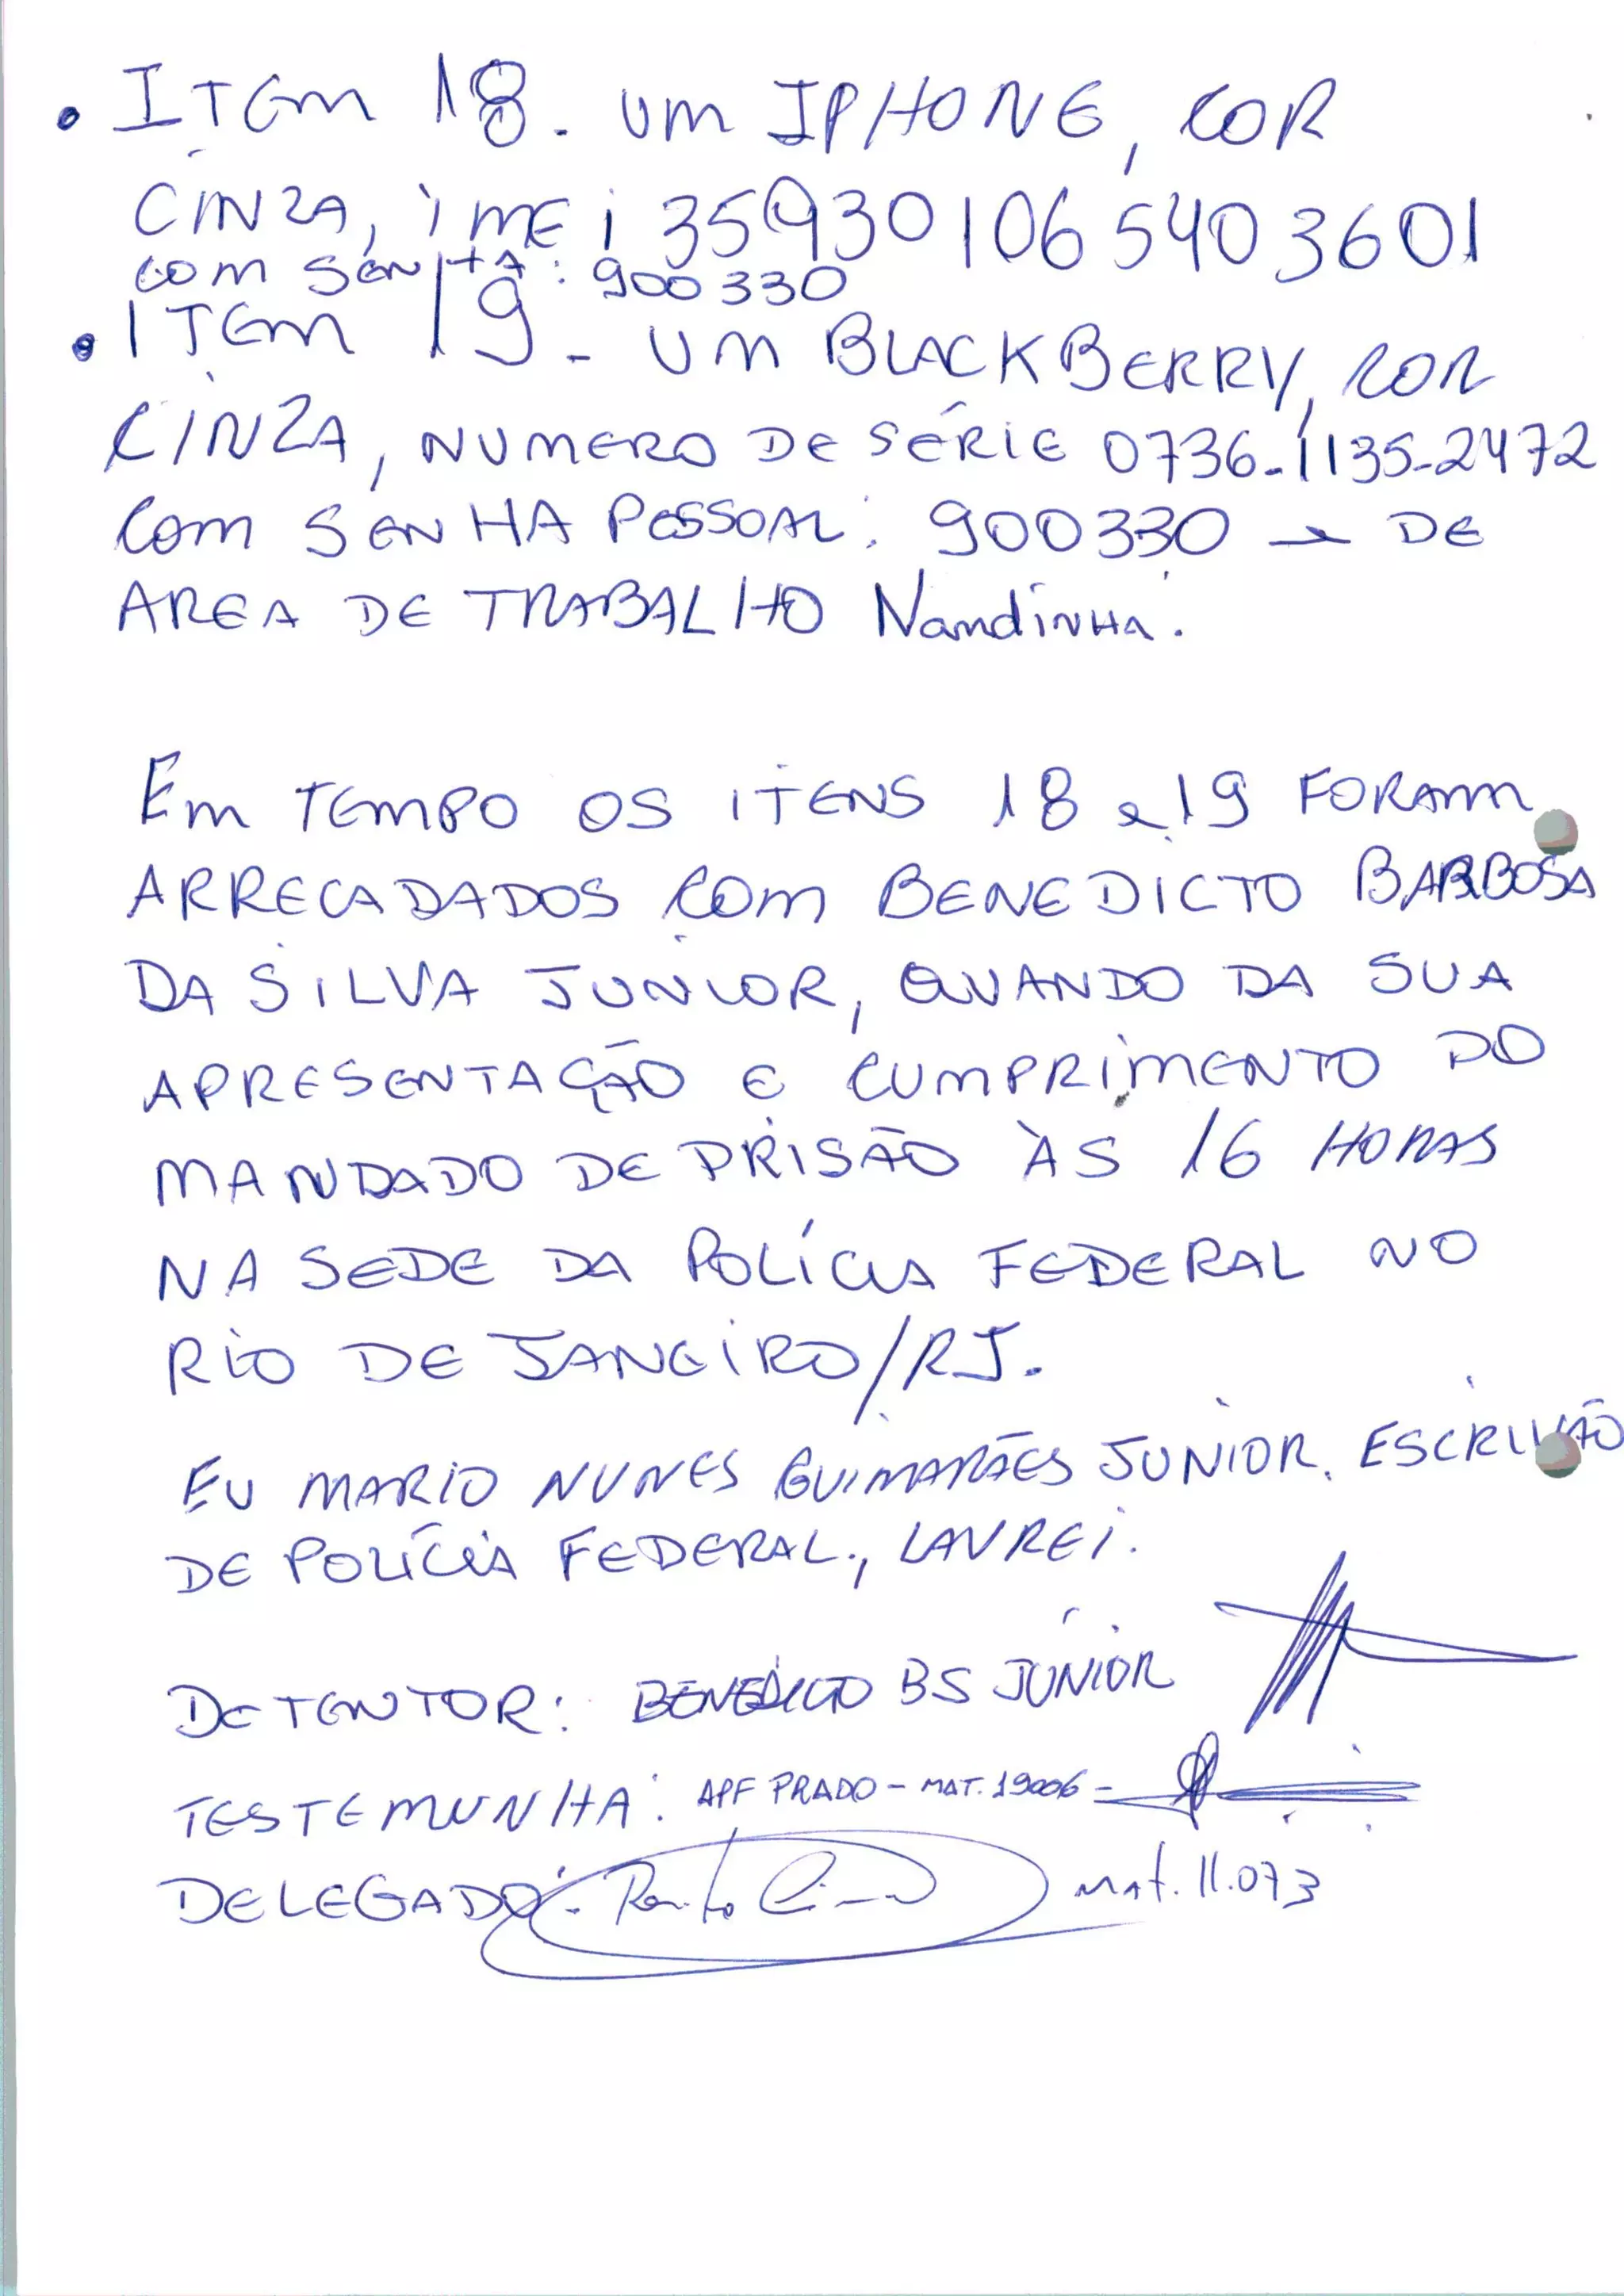 • ITEM 18. UM IPHONE, COR
CINZA, IMEI 359301065403601
COM SENHA: 900330
• ITEM 19 - UM BLACKBERRY, COR
CINZA, NUMERO DE SÉRIE 0736-1135-2472
COM SENHA PESSOAL: 900330 → DE
AREA DE TRABALHO NandiNHA.
EM TEMPO OS ITENS 18 e 19 FORAM
ARRECADADOS COM BENEDICTO BARBOSA
DA SILVA JUNIOR, QUANDO DA SUA
APRESENTAÇÃO E CUMPRIMENTO DO
MANDADO DE PRISÃO ÀS 16 HORAS
NA SEDE DA POLÍCIA FEDERAL NO
RIO DE JANEIRO/RJ.
EU MARIO NUNES GUIMARÃES JUNIOR, ESCRIVÃO
DE POLÍCIA FEDERAL, LAVREI.
DETENTOR: BENEDICTO BS JÚNIOR
TESTEMUNHA: APF PRADO - MAT. 19006 -
DELEGADO: MAT. 11.073